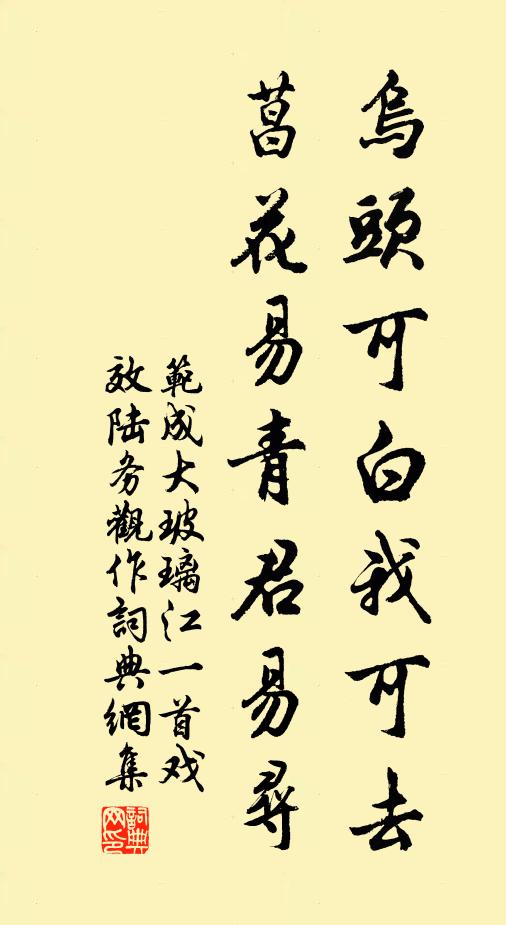 烏頭可白我可去
菖花易青君易尋
範成大玻璃江一首戏
效陆务觀作詞典網集
詞典網印